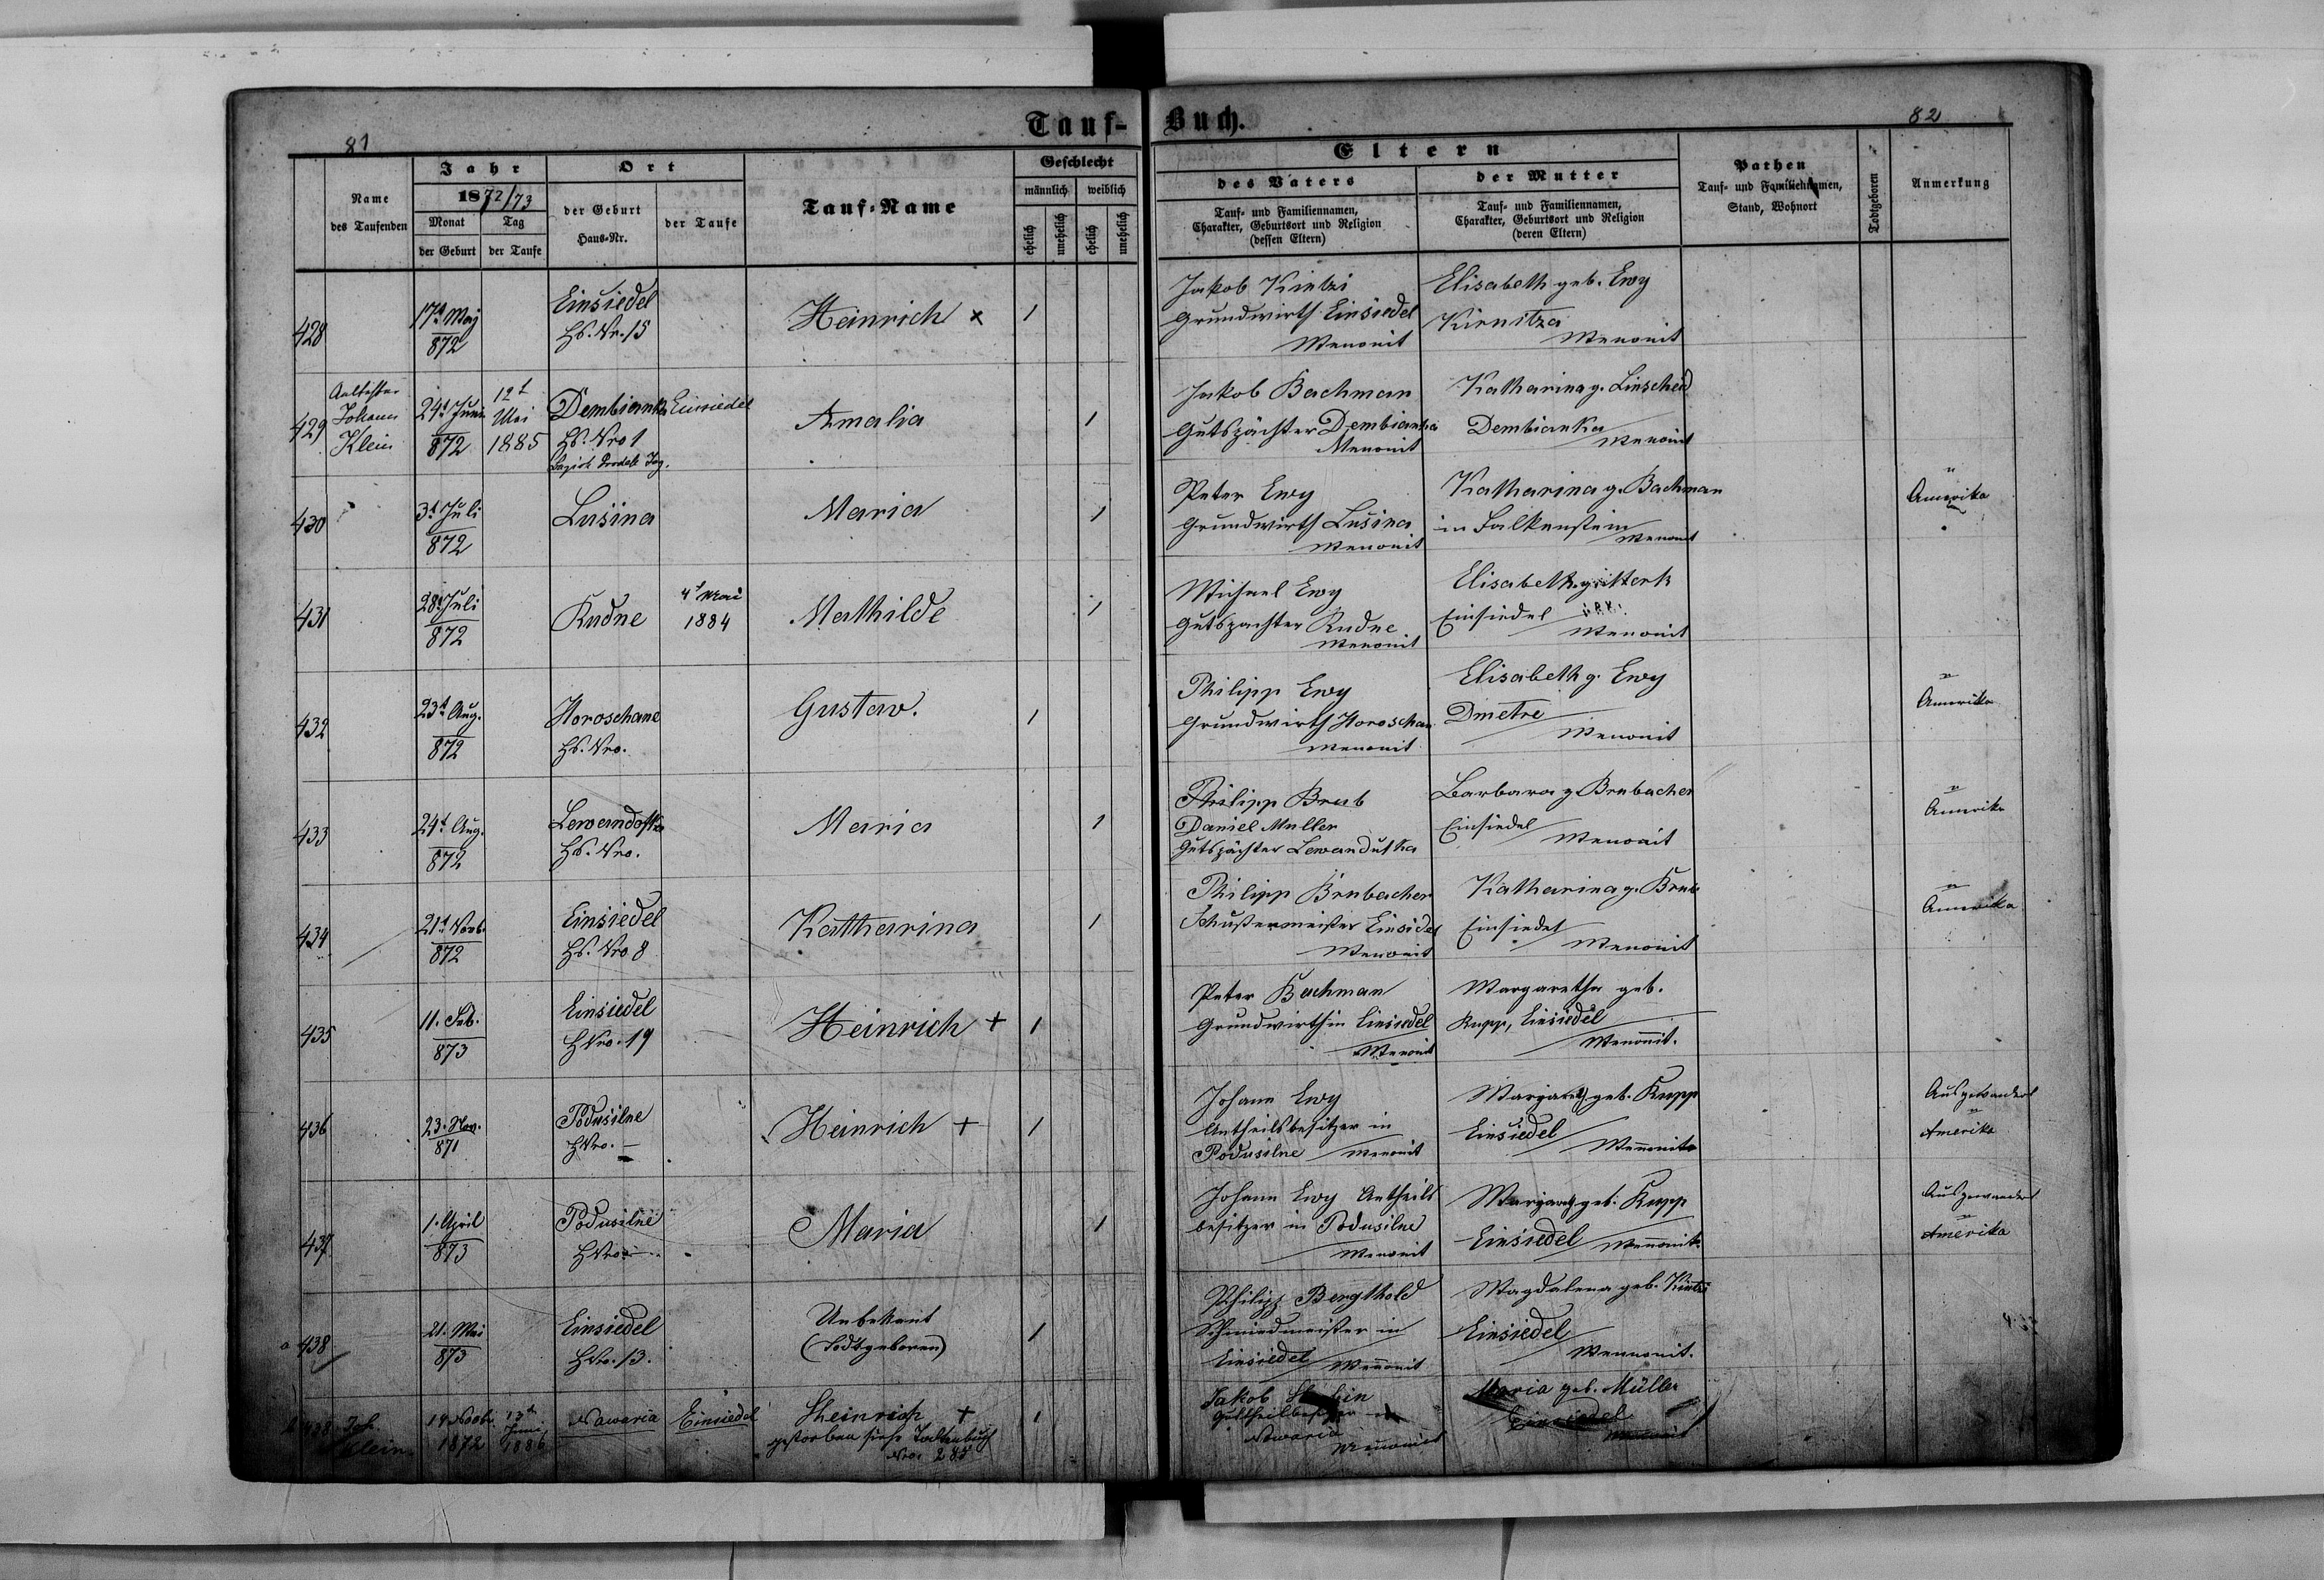 81
Tauf-
Buch.
82
Name
des Taufenden
Jahr
1872/73
Monat
Tag
der Geburt
der Taufe
Ort
der Geburt
Haus-Nr.
der Taufe
Tauf-Name
Geschlecht
männlich
weiblich
ehelich
unehelich
ehelich
unehelich
Eltern
des Vaters
der Mutter
Tauf- und Familiennamen,
Charakter, Geburtsort und Religion
(dessen Eltern)
Tauf- und Familiennamen,
Charakter, Geburtsort und Religion
(deren Eltern)
Pathen
Tauf- und Familiennamen,
Stand, Wohnort
Todtgeboren
Anmerkung
428
17t Maj
872
Einsiedel
Hs. Nr. 15
Heinrich x
1
Jakob Kintzi
Grundwirth Einsiedel
Menonit
Elisabeth geb. Ewy
Kirnitza
Menonit
429
Aeltester
Johann
Klein
24t Juni
872
12t
Mai
1885
Dembianka
Hs. Nro 1
Einsiedel
Amalia
1
Jakob Bachman
Gutspächter Dembianka
Menonit
Katharina g. Linscheid
Dembianka
Menonit
430
3t Juli
872
Lusina
Maria
1
Peter Ewy
Grundwirth Lusina
Menonit
Katharina g. Bachman
in Falkenstein
Menonit
n
Amerika
431
28t Juli
872
Rudne
4t Mai
1884
Mathilde
1
Michael Ewy
Gutspachter Rudne
Menonit
Elisabeth
Einsiedel
Menonit
432
23t Aug.
872
Horoschane
Hs. Nro.
Gustav.
1
Philipp Ewy
Grundwirth Horoschan
Menonit
Elisabeth g. Ewy
Dmetre
Menonit
n
Amerika
433
24t Aug.
872
Lewandofka
Hs. Nro.
Maria
1
Philipp Brub
Daniel Muller
Gutspächter Lewandufka
Barbara g Brubacher
Einsiedel
Menonit
n
Amerika
434
21t Novb.
872
Einsiedel
Hs. Nro 8
Katharina
1
Philipp Brubacher
Schustermeister Einsidel
Menonit
Katharina g. Brub
Einsiedel
Menonit
n
Amerika
435
11. Feb.
873
Einsiedel
HNro. 19
Heinrich +
1
Peter Bachman
Grundwirth in Einsiedel
Menonit
Margaretha geb.
Rupp, Einsiedel
Menonit.
436
23. Nov.
871
Podusilne
HNro. —
Heinrich +
1
Johann Ewy
Antheilsbesitzer in
Podusilne Menonit
Margareth geb. Rupp
Einsiedel
Mennonite
Ausgewandert
n
Amerika
437
1. April
873
Podusilne
HNro —
Maria
1
Johann Ewy Antheils
besitzer in Podusilne
Menonit
Margareth geb. Rupp
Einsiedel Menonite
Ausgewandert
n
Amerika
a 438
21. Mai
873
Einsiedel
HNro. 13.
Unbekant
(Todtgeboren)
1
Philipp Bergthold
Schmiedmeister in
Einsiedel Menonit
Magdalena geb. Kintzi
Einsiedel
Mennonit.
b 438
Joh.
Klein.
14 Novb.
1872
13t
Juni
1886
Nawaria
Einsiedel
Heinrich +
gestorben siehe Todtenbuch
Nro.
1
Jakob
Nawaria
Mennonit
Maria geb. Müller
Einsiedel